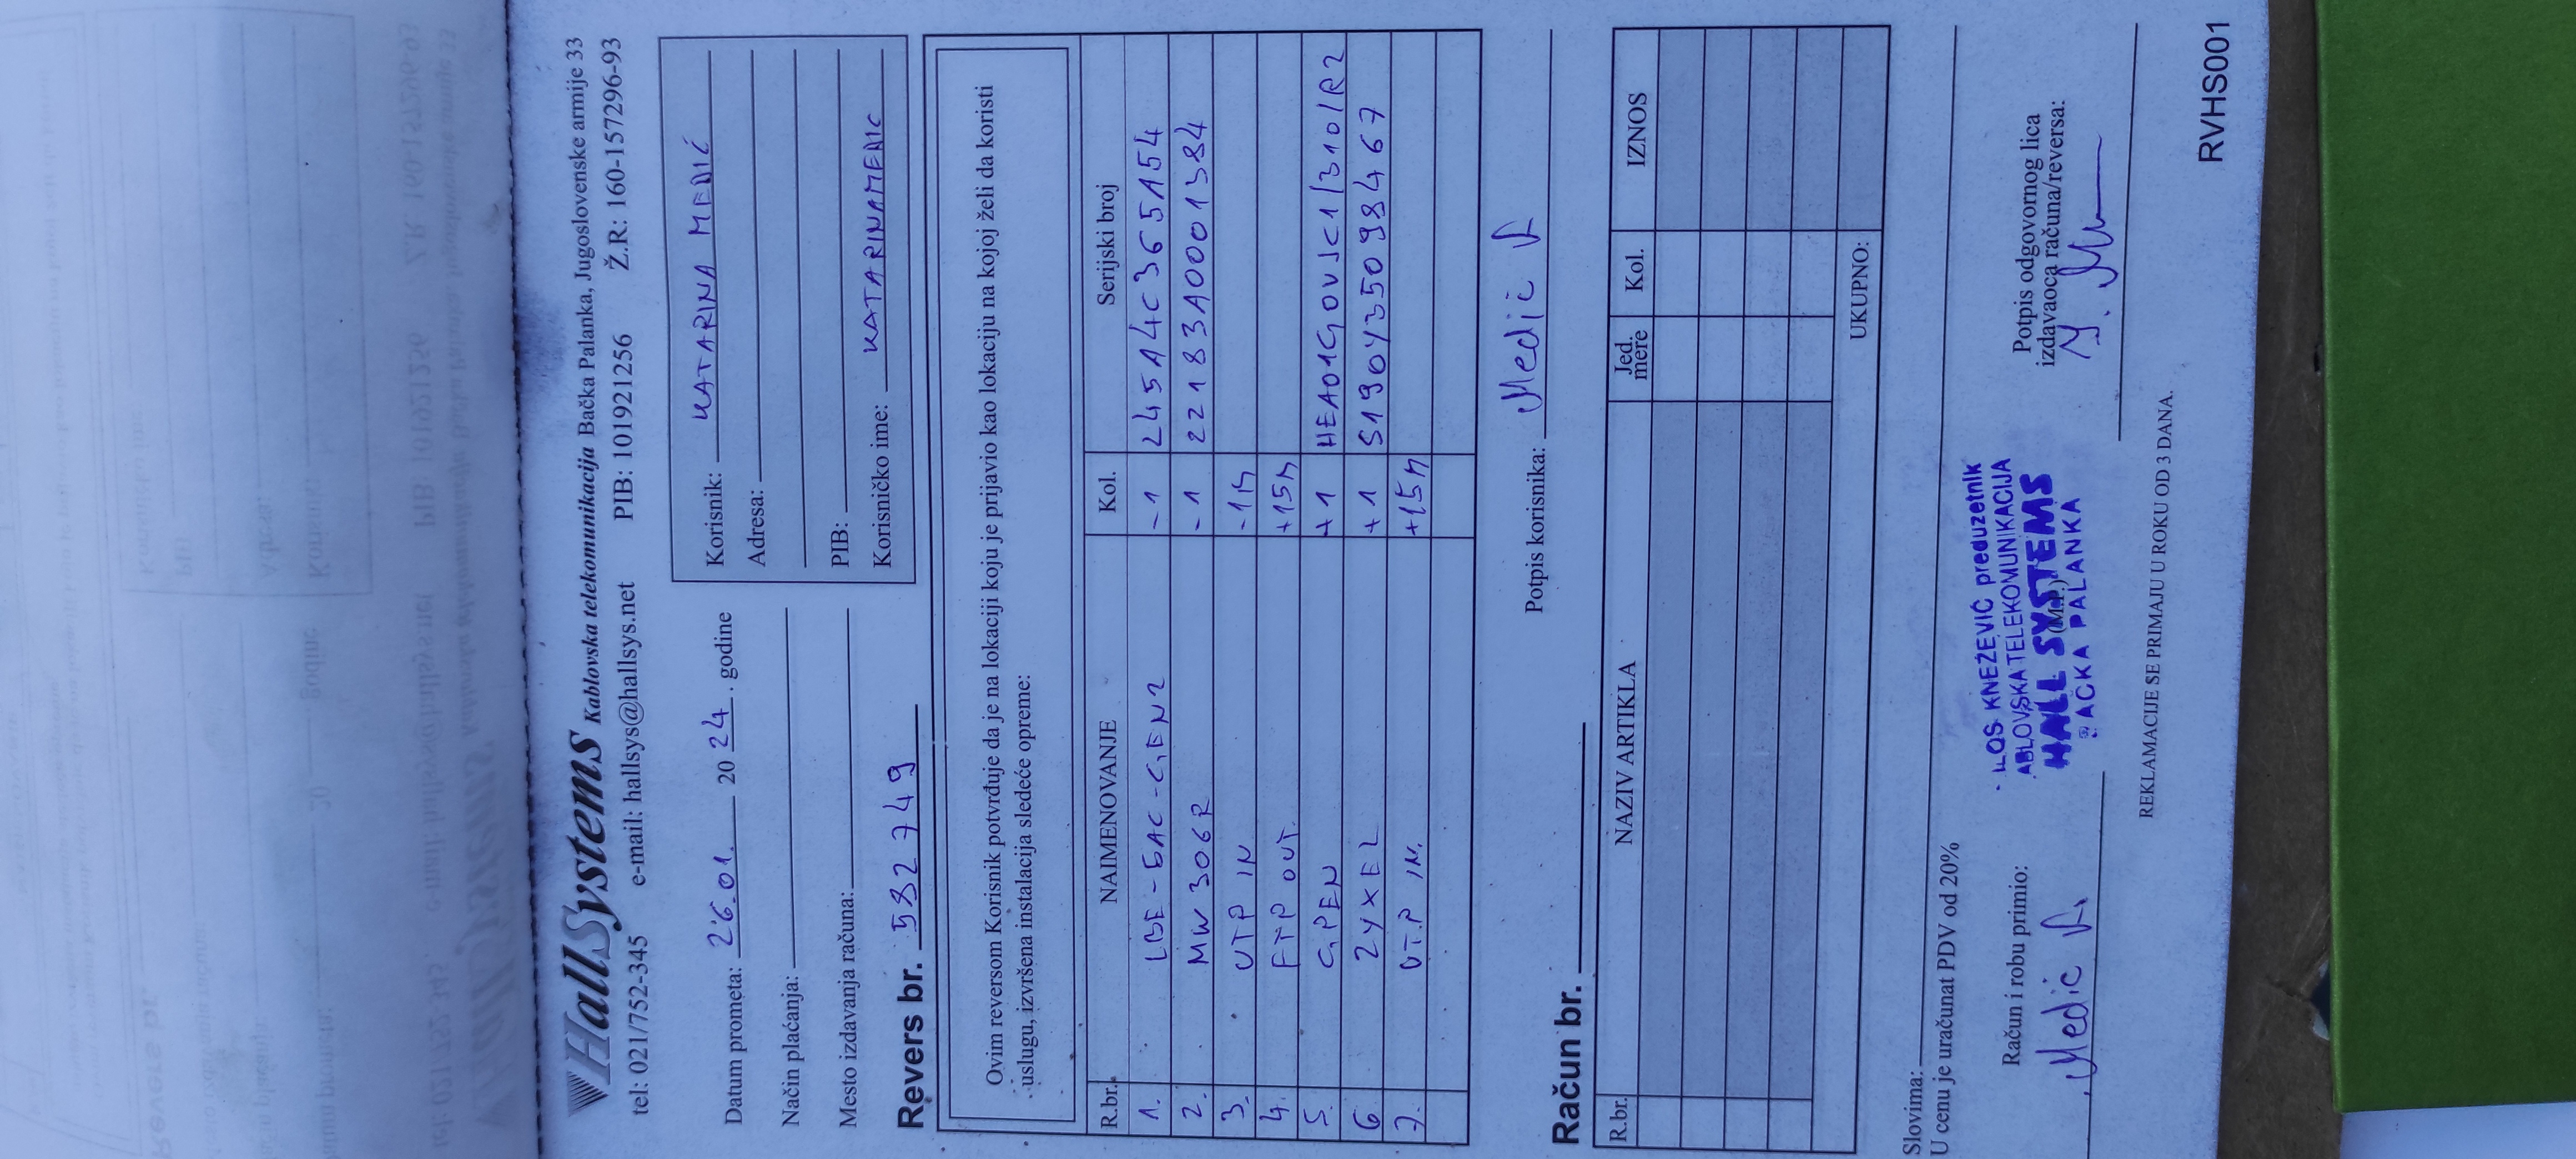 HallSystems Kablovska telekomunikacija Bačka Palanka, Jugoslovenske armije 33
tel: 021/752-345 e-mail: hallsys@hallsys.net PIB: 101921256 Ž.R: 160-157296-93
Datum prometa: 26.01. 2024. godine
Način plaćanja:
Mesto izdavanja računa:
Korisnik: KATARINA MEDIĆ
Adresa:
PIB:
Korisničko ime: KATARINAMEDIC
Revers br. 532749
Ovim reversom Korisnik potvrđuje da je na lokaciji koju je prijavio kao lokaciju na kojoj želi da koristi
uslugu, izvršena instalacija sledeće opreme:
R.br. NAIMENOVANJE Kol. Serijski broj
1. LBE-5AC-GEN2 -1 245A4C365A154
2. MW306R -1 22183A0001384
3. UTP IN -1m
4. FTP OUT +15m
5. GPEN +1 HEA01GOVJC1/310/R2
6 ZYXEL +1 S190Y35098467
7. UTP IN. +15m
Potpis korisnika: Medić
Račun br.
R.br. NAZIV ARTIKLA Jed. mere Kol. IZNOS
UKUPNO:
Slovima:
U cenu je uračunat PDV od 20%
Račun i robu primio:
Medić
KNEŽEVIĆ preduzetnik
ABLOVSKA TELEKOMUNIKACIJA
HALL SYSTEMS
(M.P.)
BAČKA PALANKA
Potpis odgovornog lica
izdavaoca računa/reversa:
REKLAMACIJE SE PRIMAJU U ROKU OD 3 DANA.
RVHS001